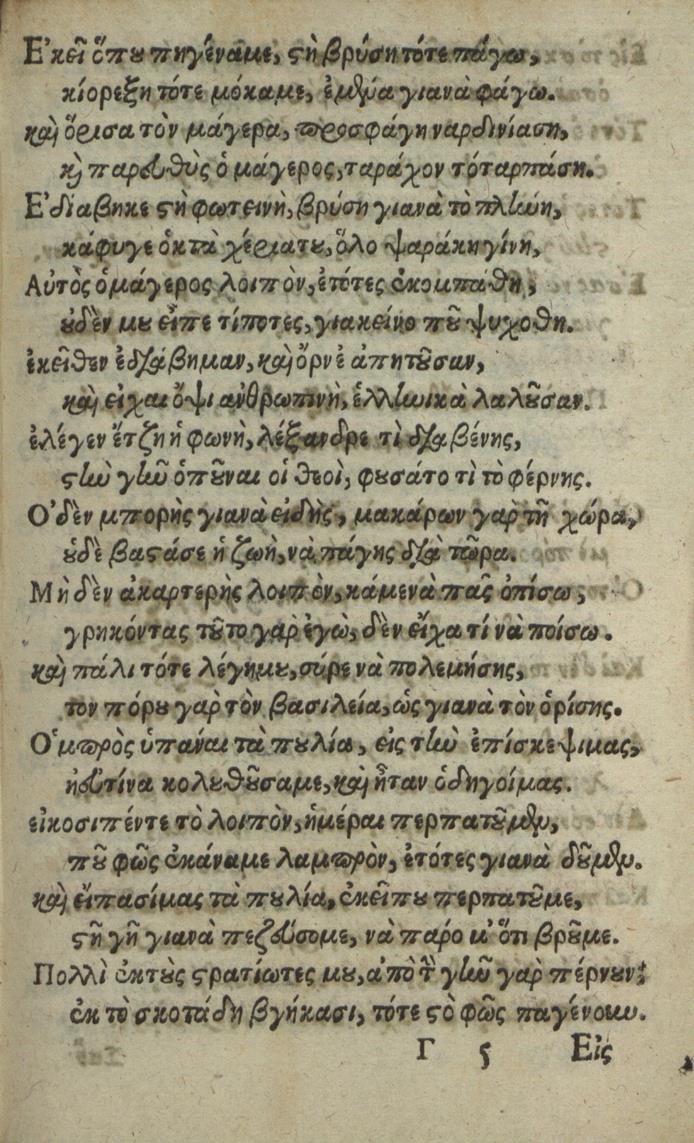 Ε’κεῖ ὅπου πηγέναμε, στὴ βρύση τότε πάγω,
κίορεξη τότε μόκαμε, ἐμένα γιανὰ φάγω.
καὶ ὅρισα τὸν μάγερα, προσφάγη ναρδινίαση,
κὶ παρευθὺς ὁ μάγερος, ταράχον τόταρπάση.
Ε’δίαβηκε στὴ φωτεινὴ, βρύση γιανὰ τὸ πλύνη,
κάφυγε ὀκτὰ χέριατου, ὅλο ψαράκη γίνη,
Αὐτὸς ὁμάγερος λοιπὸν, ἐτότες ἐκομπάθη,
οὐδὲν μου εἶπε τίποτες, γιακεῖνο ποῦ ψυχοθη.
ἐκεῖθεν ἐδιάβημαν, καὶ ὄρνὲ ἀπητοῦσαν,
καὶ εἰχαι ὄψι ανθρωπινὴ, ἑλληνικὰ λαλοῦσαν.
ἐλέγεν ἔτζη ἡ φωνὴ, λέξανδρε τὶ διαβένης,
στὴν γῆν ὁποῦναι οἱ θεοὶ, φουσάτο τὶ τὸ φέρνης.
Ο’δὲν μπορῆς γιανὰ εἰδῆς, μακάρων γαρ τῆ χώρα,
οὐδὲ βαστάσε ἡ ζωὴ, νὰ πάγης διὰ τῶρα.
Μὴ δὲν ἀκαρτερῆς λοιπὸν, κάμενὰ πας ὀπίσω,
γρηκόντας τοῦτο γαρ ἐγὼ, δὲν εἶχα τί νὰ ποίσω.
καὶ πάλι τότε λέγημου, σύρε νὰ πολεμήσης,
τον πόρου γαρ τὸν βασιλεία, ὡς γιανὰ τὸν ὁρίσης.
Ο‘μπρὸς ὑπάναι τὰ πουλία, εἰς τὴν ἐπίσκεψιμας,
ηὑτίνα κολουθοῦσαμε, καὶ ἦταν ὁδηγοίμας.
εἰκοσιπέντε τὸ λοιπὸν, ἡμέραι περπατοῦμεν,
ποῦ φῶς ἐκάναμε λαμπρὸν, ἐτότες γιανὰ δοῦμεν.
καὶ εἴπασίμας τὰ πουλία, ἐκεῖπου περπατοῦμε,
στῆ γῆ γιανὰ πεζεύσομε, νὰ παρό κ’ ὅτι βροῦμε.
Πολλὶ ἐκτοὺς στρατίωτες μου, ἀπὸ τὴν γῆν γαρ πέρνουν:
ἐκ τὸ σκοτάδη βγήκασι, τότε στὸ φῶς παγένουν.
Γ 5 Εἰς